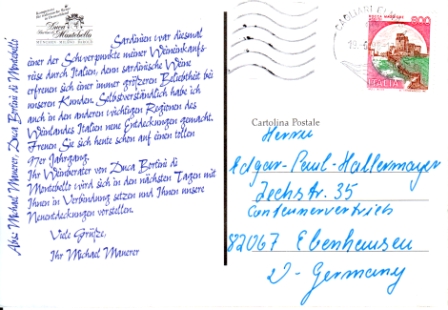 Duca
Bortini di
Montebello
Sardinien war diesmal
einer der Schwerpunkte meiner Weineinkaufs-
reise durch Italien, denn sardinische Weine
erfreuen sich einer immer größeren Beliebtheit bei
unseren Kunden. Selbstverständlich habe ich
auch in den anderen wichtigen Regionen des
Weinlandes Italien neue Entdeckungen gemacht.
Freuen Sie sich heute schon auf einen tollen
97er Jahrgang.
Ihr Weinberater von Duca Bortini di
Montebello wird sich in den nächsten Tagen mit
Ihnen in Verbindung setzen und Ihnen unsere
Neuentdeckungen vorstellen.
Viele Grüße,
Ihr Michael Manerer
Abs: Michael Manerer, Duca Bortini di Montebello
CAGLIARI
800
ITALIA
Cartolina Postale
Herrn
Edgar-Paul-Hallermayer
Zechstr. 35
Containervertrieb
82067 Ebenhausen
D-Germany